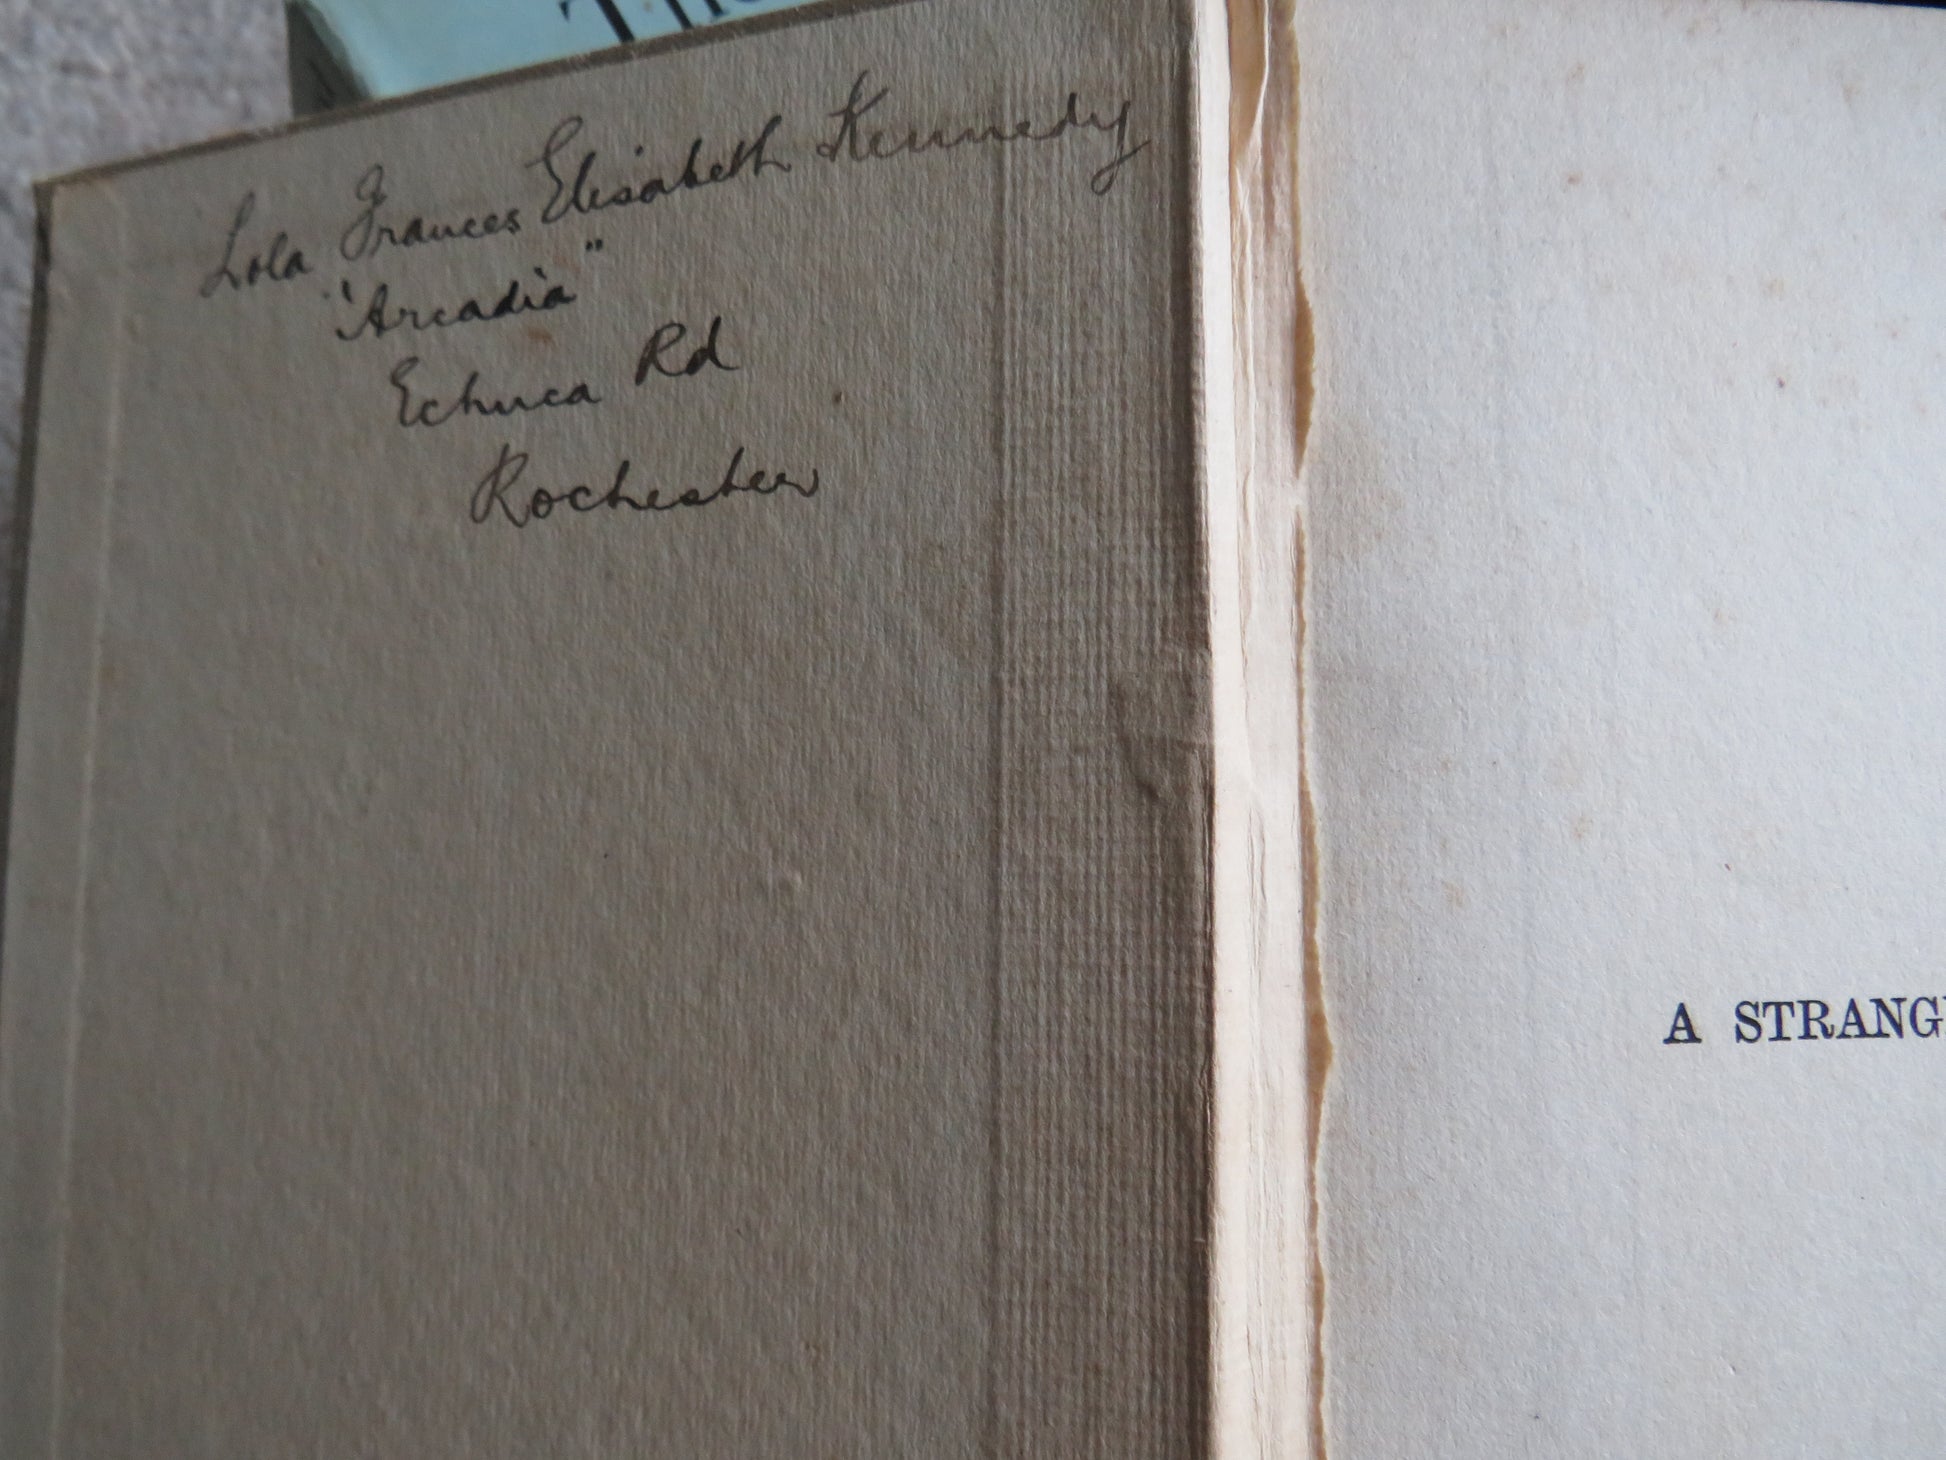 Lola Frances Elisabeth Kennedy
"Arcadia"
Echuca Rd
Rochester
A STRANG